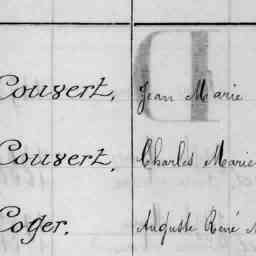 Couvert, Jean Marie
Couvert, Charles Marie
Coyer. Auguste René